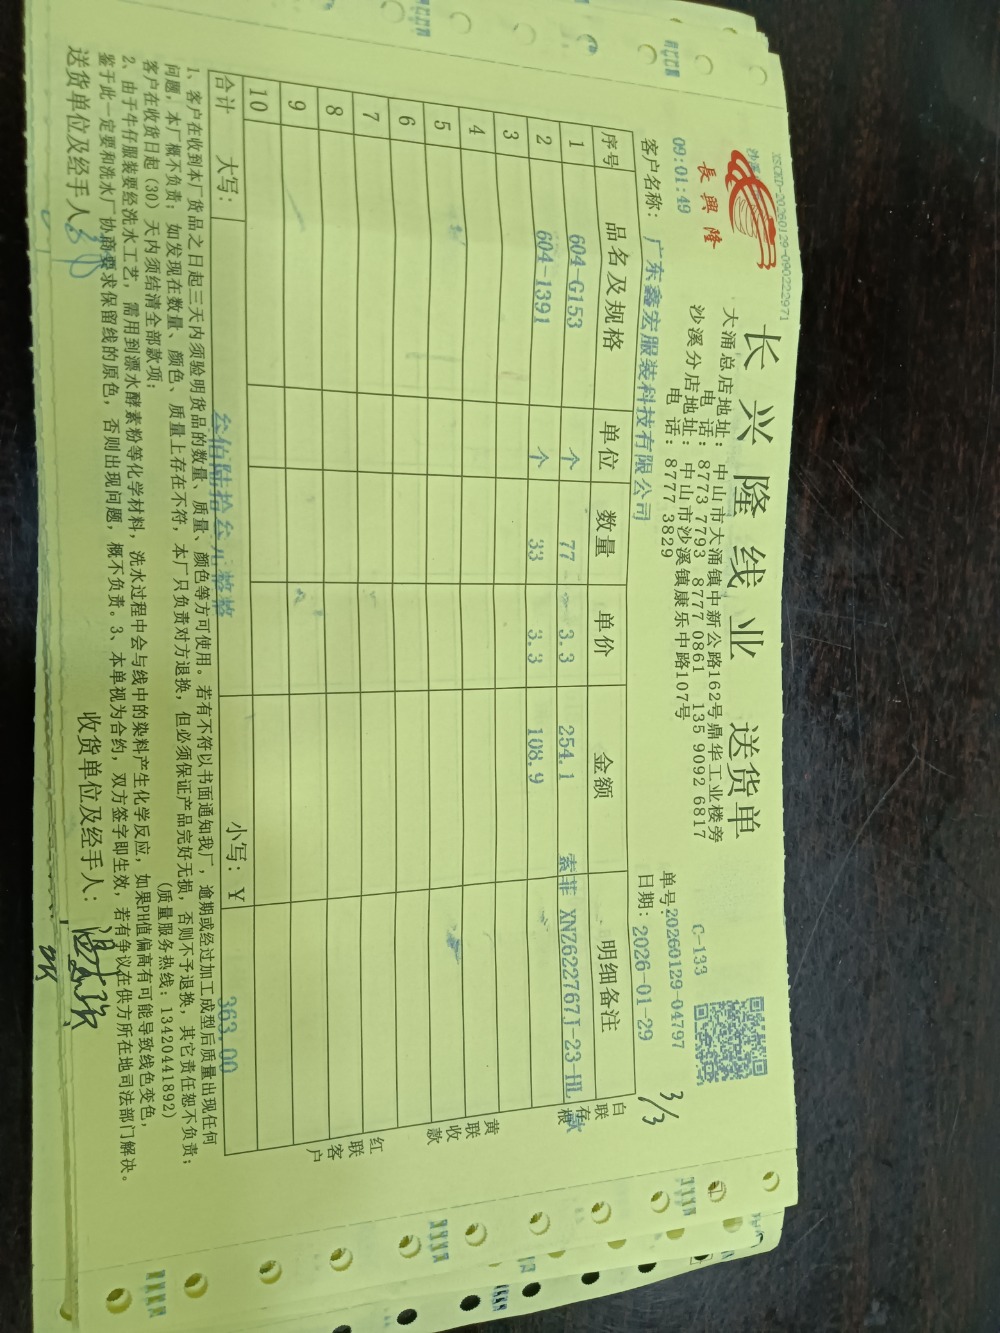 XSCKD-20260129-0902222971
長興隆
长兴隆线业 送货单
大涌总店地址: 中山市大涌镇中新公路162号鼎华工业楼旁
电 话: 8773 7793 8777 0861 135 9092 6817
沙溪分店地址: 中山市沙溪镇康乐中路107号
电 话: 8777 3829
C-133
09:01:49
单号:20260129-04797
3/3
客户名称: 广东鑫宏服装科技有限公司
日期: 2026-01-29
序号 品名及规格 单位 数量 单价 金额 明细备注
1 604-G153 个 77 3.3 254.1 索菲 XNZ622767J-23-HL
2 604-1391 个 33 3.3 108.9
3
4
5
6
7
8
9
10
合计 大写: 叁佰陆拾叁元整 小写: ¥ 363.00
白联存根
黄联收款
红联客户
1、客户在收到本厂货品之日起三天内须验明货品的数量、质量、颜色等方可使用。若有不符以书面通知我厂，逾期或经过加工成型后质量出现任何
问题，本厂概不负责；如发现在数量、颜色、质量上存在不符，本厂只负责对方退换，但必须保证产品完好无损，否则不予退换，其它责任恕不负责；
客户在收货日起（30）天内须结清全部款项；
(质量服务热线: 13420441892)
2、由于牛仔服装要经洗水工艺，需用到漂水酵素粉等化学材料，洗水过程中会与线中的染料产生化学反应，如果PH值偏高有可能导致线色变色，
鉴于此一定要和洗水厂协商要求保留线的原色，否则出现问题，概不负责。3、本单视为合约，双方签字即生效，若有争议在供方所在地司法部门解决。
送货单位及经手人:
收货单位及经手人: